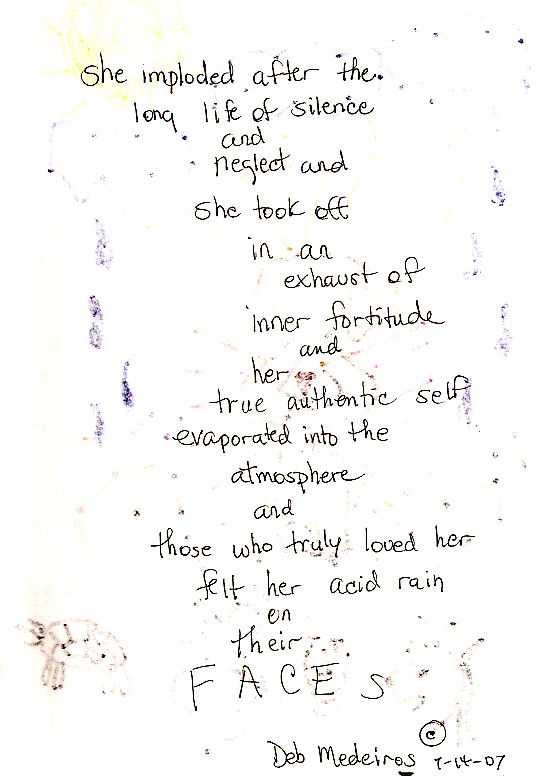 She imploded after the.
long life of silence
and
neglect and
she took off
in an
exhaust of
inner fortitude
and
her
true authentic self
evaporated into the
atmosphere
and
those who truly loved her
felt her acid rain
on
their....
FACES
©
Deb Medeiros 7-14-07